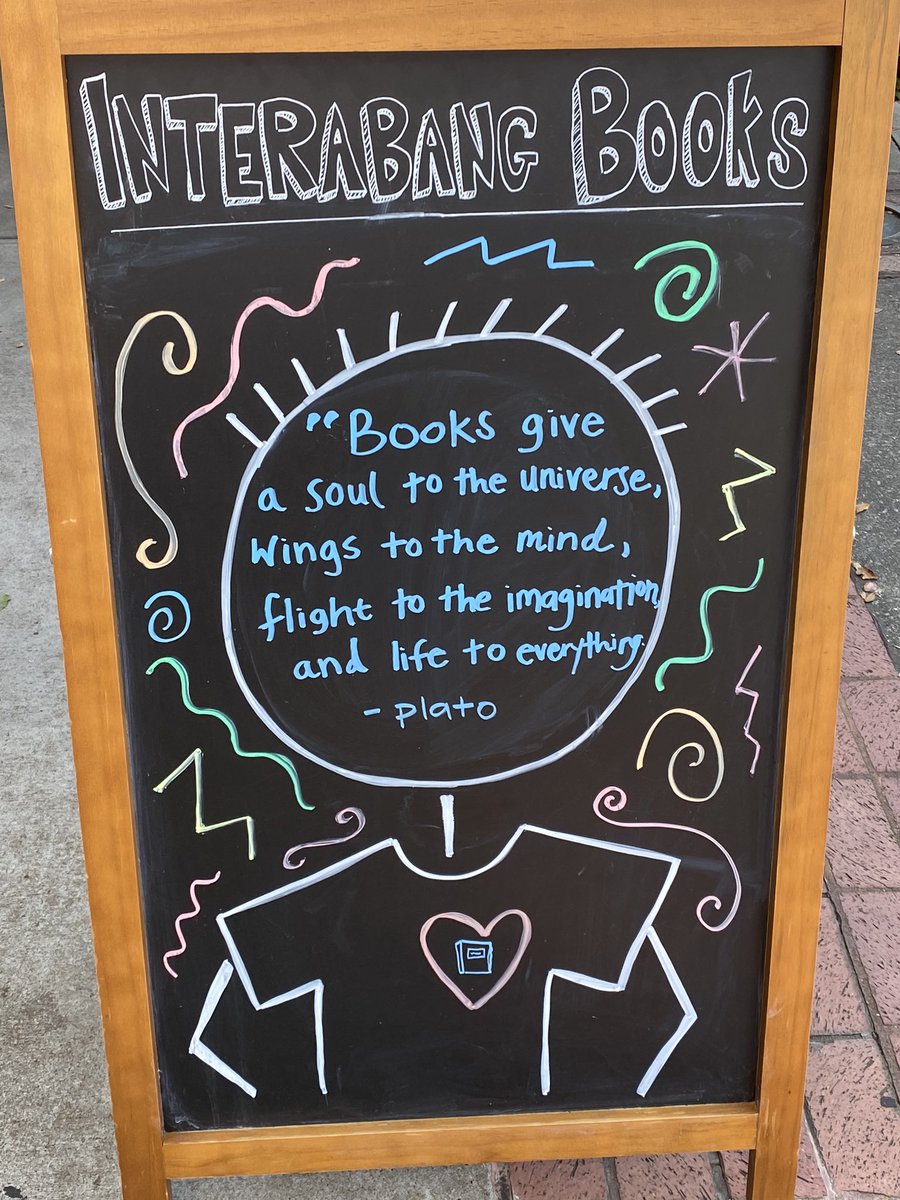 INTERABANG BOOKS
"Books give
a soul to the universe,
wings to the mind,
flight to the imagination,
and life to everything.
- plato